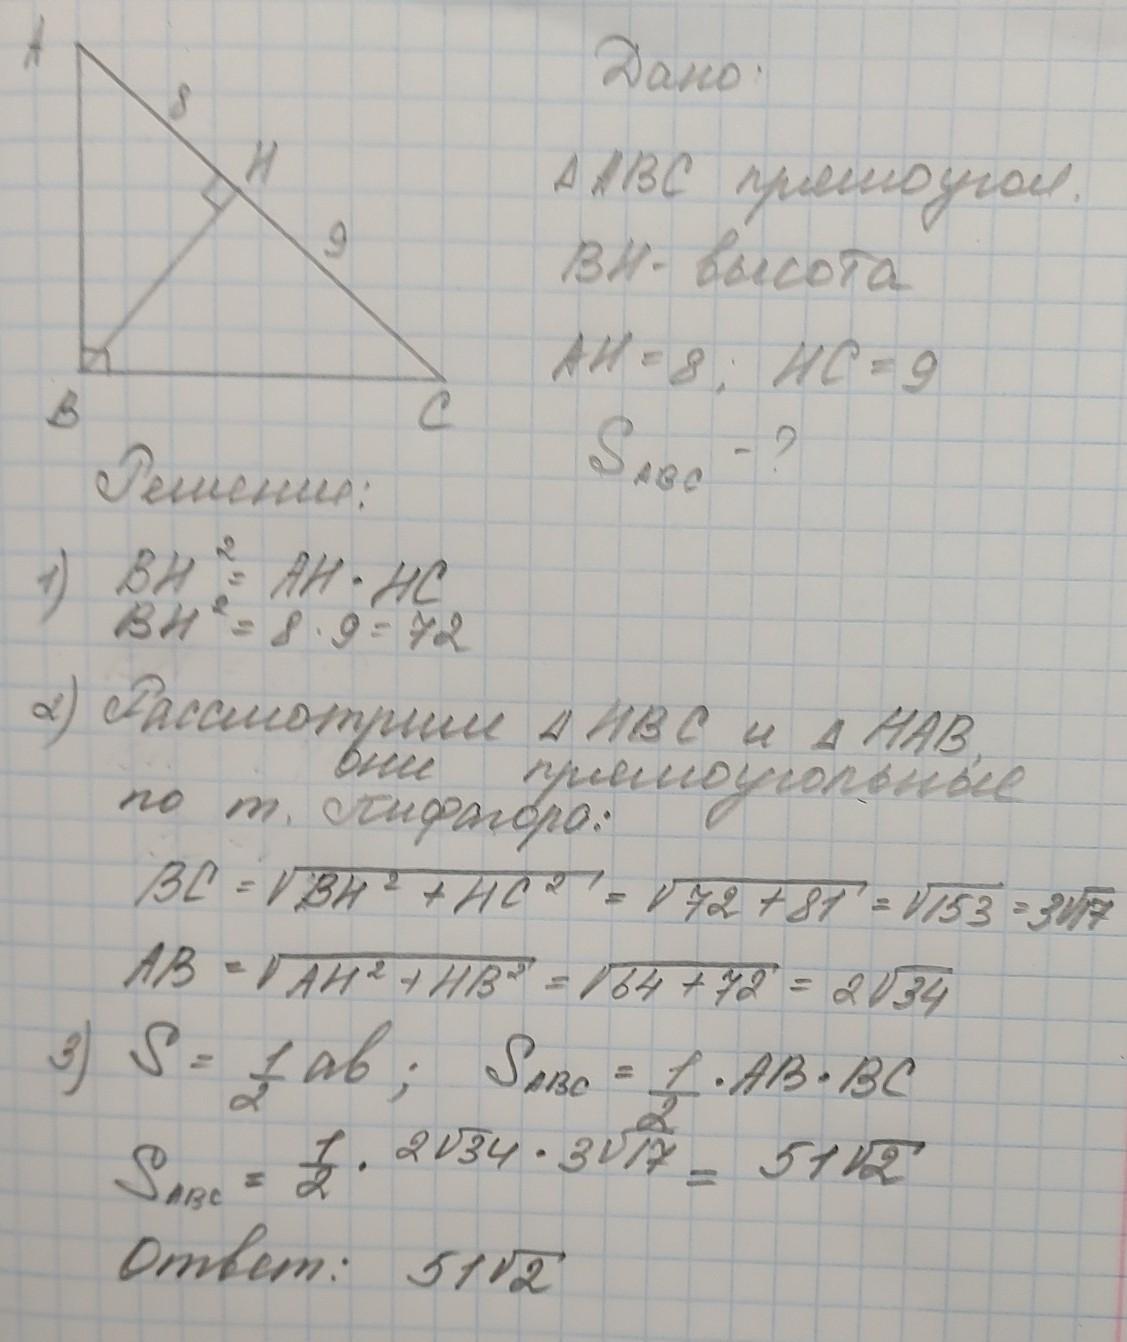 A
8
H
9
B
C
Дано:
△ABC прямоугол.
BH - высота
AH = 8; HC = 9
S_ABC - ?
Решение:
1) BH² = AH · HC
BH² = 8 · 9 = 72
2) Рассмотрим △HBC и △HAB,
они прямоугольные
по т. Пифагора:
BC = √(BH² + HC²) = √(72 + 81) = √153 = 3√17
AB = √(AH² + HB²) = √(64 + 72) = 2√34
3) S = 1/2 ab; S_ABC = 1/2 · AB · BC
S_ABC = 1/2 · 2√34 · 3√17 = 51√2
Ответ: 51√2